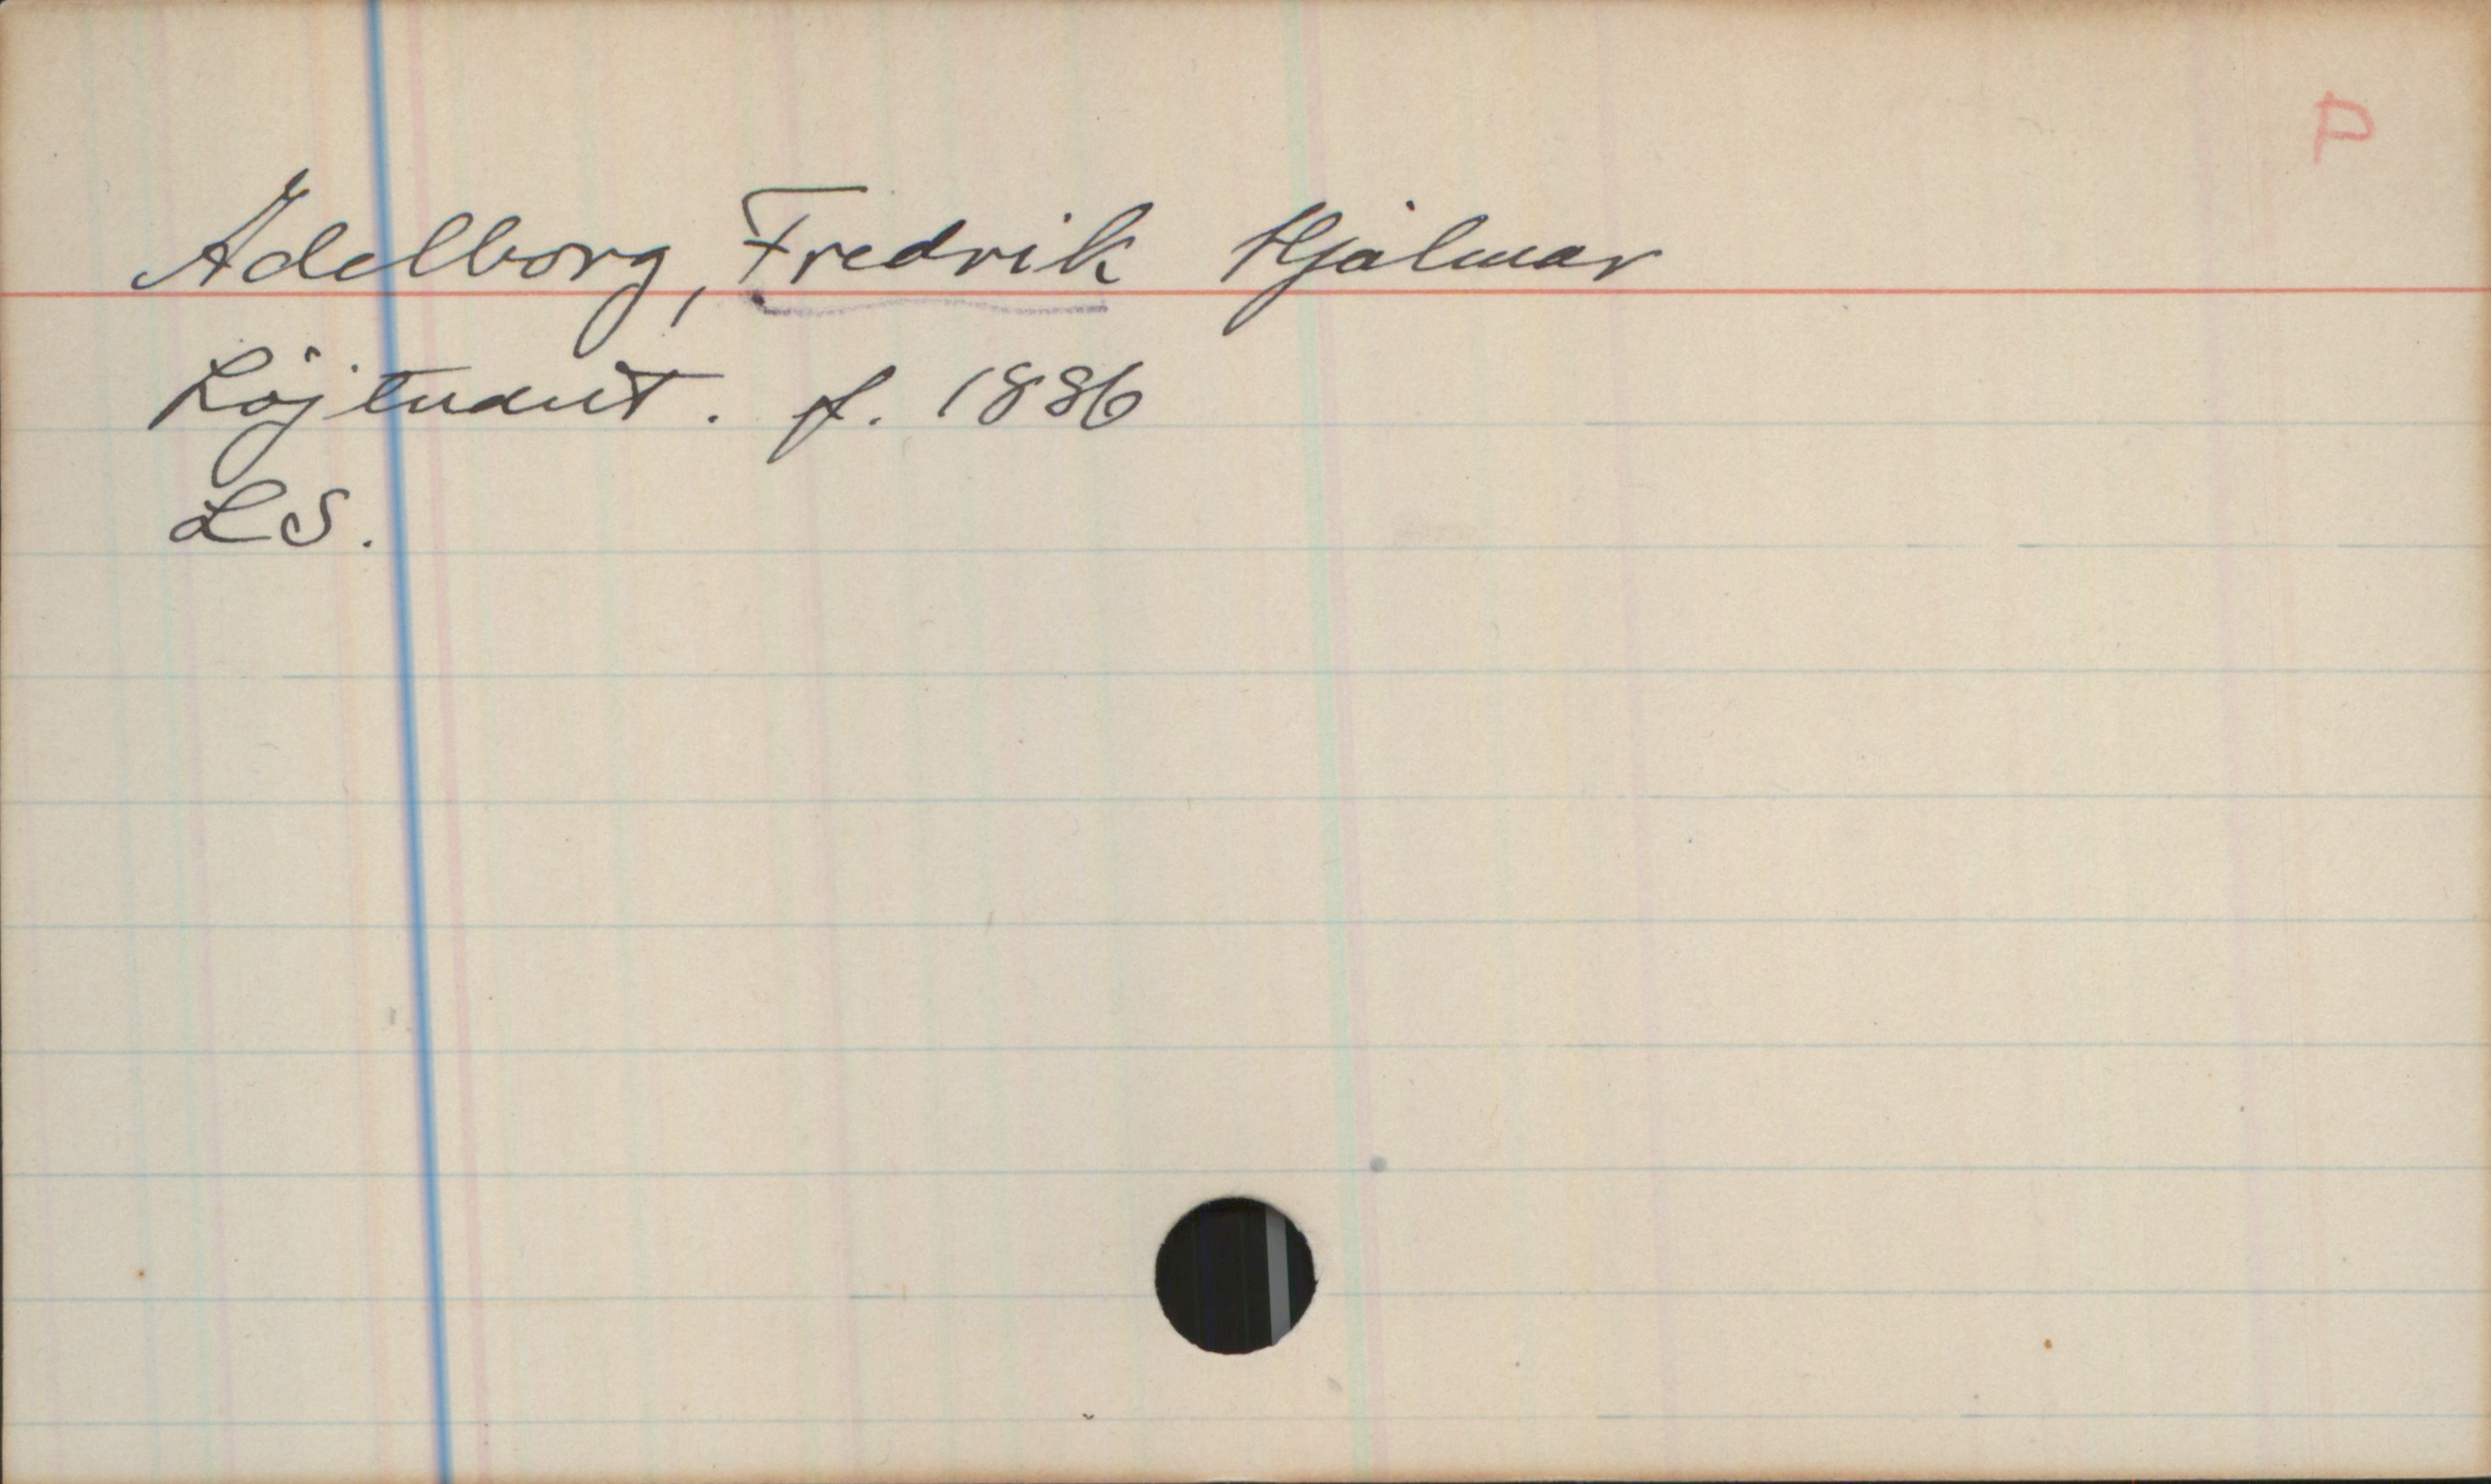 P
Adelborg, Fredrik Hjalmar
Löjtnant. f. 1886
LS.